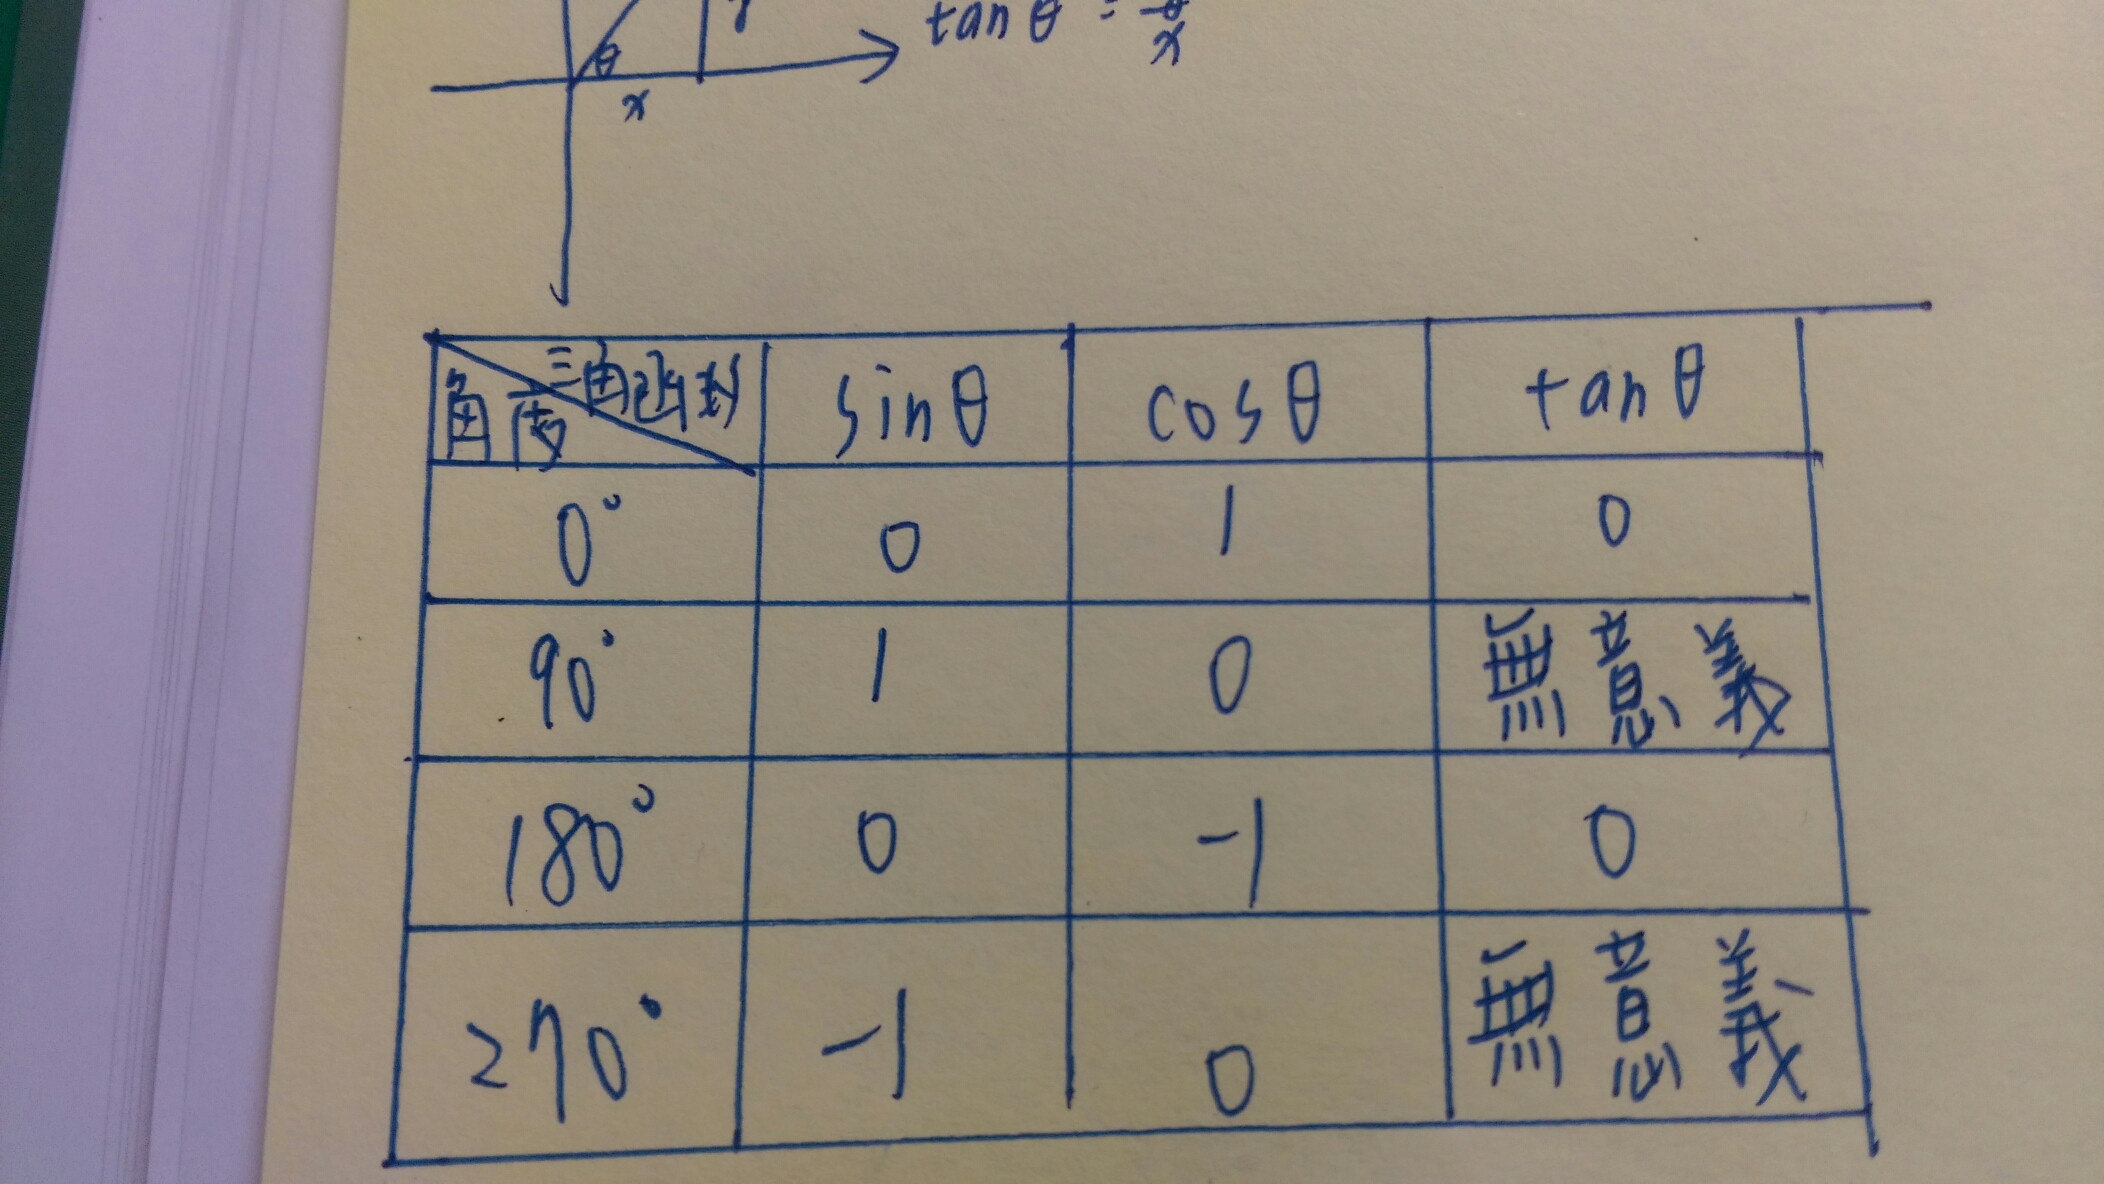 θ
x
tan θ = x
三角函数
角度
sinθ
cosθ
tanθ
0°
0
1
0
90°
1
0
無意義
180°
0
-1
0
270°
-1
0
無意義